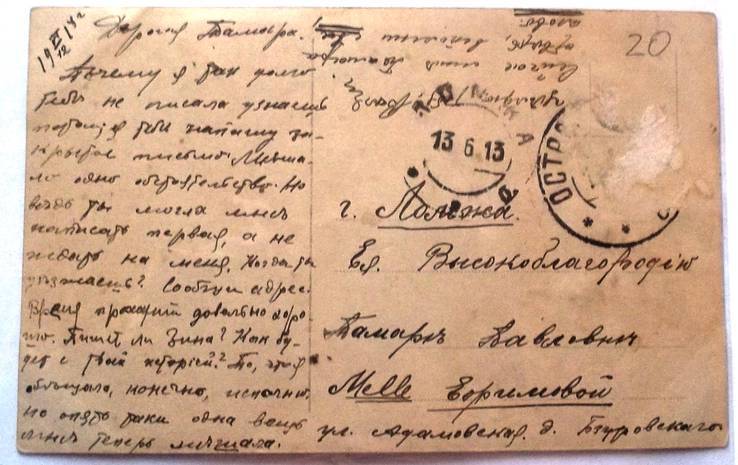 19 VI/12 14 г.
Дорогая Тамара.
Почему я так долго
тебѣ не писала узнаешь
потомъ я тебѣ напишу за-
крытое письмо. Мѣша-
ло одно обстоятельство. Но
вѣдь ты могла мнѣ
написать первая, а не
ждать на меня. Когда ты
уѣзжаешь? Сообщи адрес.
Время проходит довольно хоро-
шо. Пишет ли Зина? Как бу-
дет с твоей исторіей? То, что я
обѣщала, конечно, исполню,
но опять таки одна вещь
мнѣ теперь мѣшала.
20
ЛОМЖА
13 6 13
ОСТРО
г. Ломжа.
Ея Высокоблагородію
Тамарѣ Павловнѣ
Melle Ефримовой
ул. Адамовская, д. Бзуровскаго